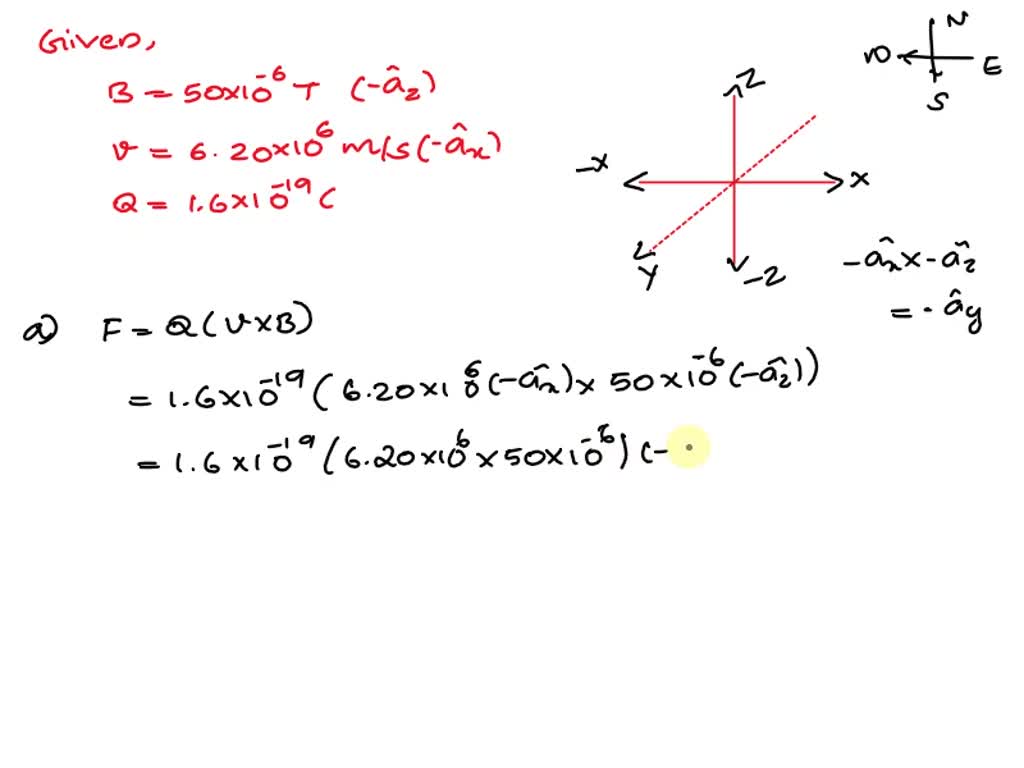 Given,
B = 50×10⁻⁶ T (-â₂)
v = 6.20×10⁶ m/s (-âₓ)
Q = 1.6×10⁻¹⁹ C
N
E
S
Z
-X
X
Y
-Z
-âₓ × -â₂
= -â_y
a) F = Q(v×B)
= 1.6×10⁻¹⁹ (6.20×10⁶ (-âₓ) × 50×10⁻⁶ (-â₂))
= 1.6×10⁻¹⁹ (6.20×10⁶ × 50×10⁻⁶) (-